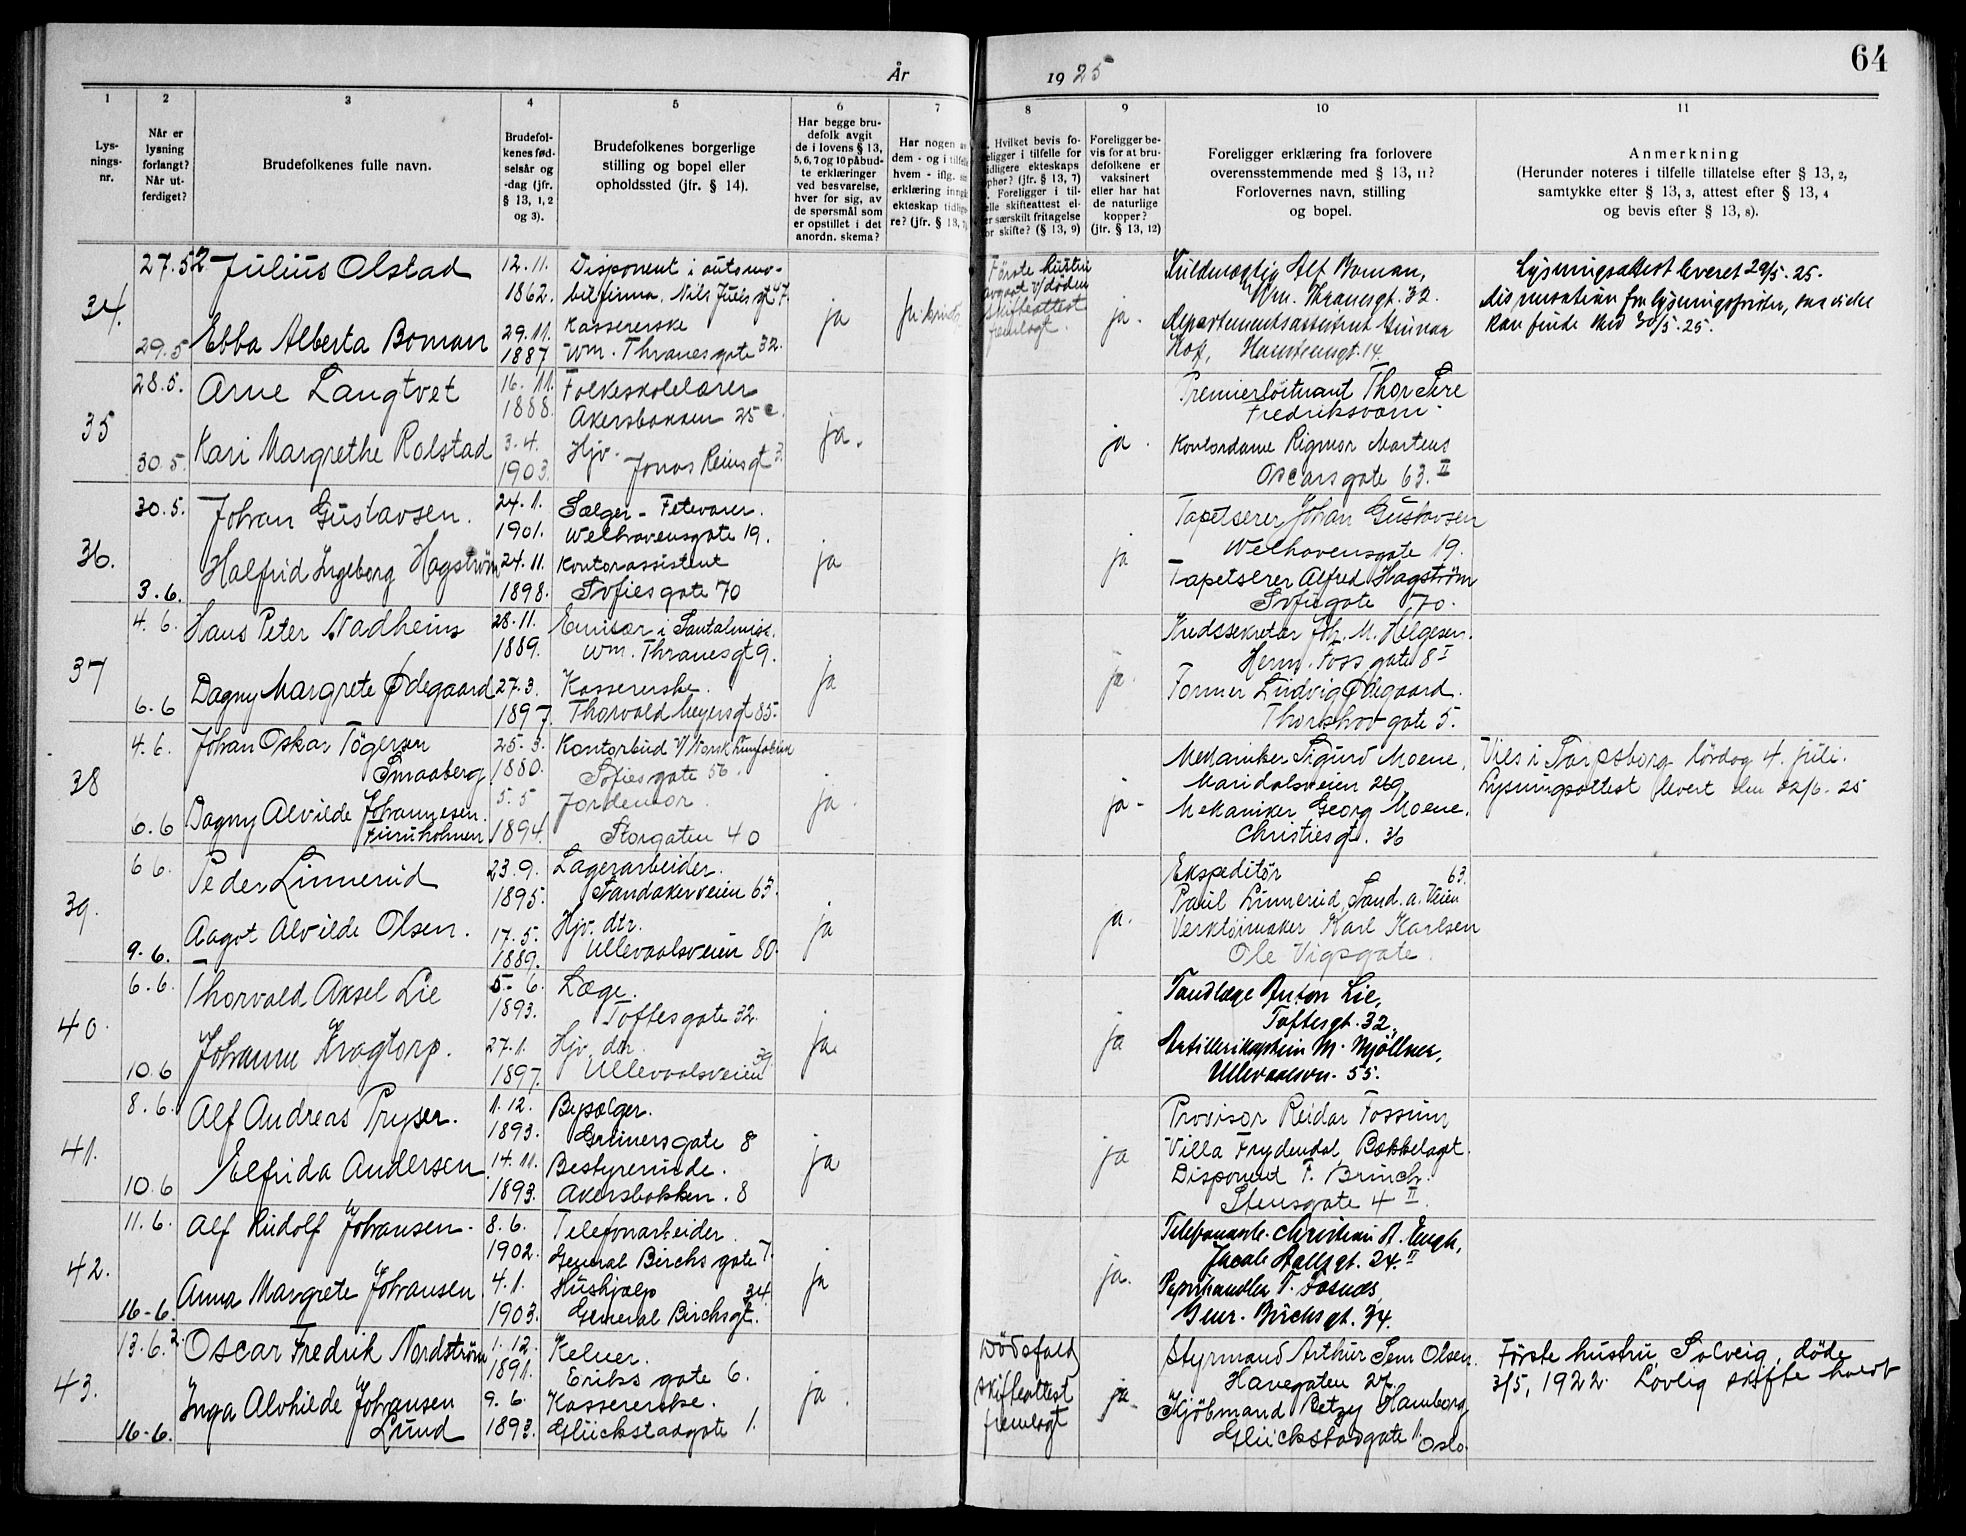 År 1925
64
1
Lys-
nings-
nr.
2
Når er
lysning
forlangt?
Når ut-
ferdiget?
3
Brudefolkenes fulle navn.
4
Brudefol-
kenes fød-
selsår og
-dag (jfr.
§ 13, 1, 2
og 3).
5
Brudefolkenes borgerlige
stilling og bopel eller
opholdssted (jfr. § 14).
6
Har begge bru-
defolk avgit
de i lovens § 13,
5, 6, 7 og 10 påbud-
te erklæringer
ved besvarelse,
hver for sig, av
de spørsmål som
er opstillet i det
anordn. skema?
7
Har nogen a
dem - og i tilfelle
hvem - iflg. si
erklæring inng
ekteskap tidlig
re? (jfr. § 13, 7)
8
Hvilket bevis fo-
religger i tilfelle for
tidligere ekteskaps
ophør? (jfr. § 13, 7)
Foreligger i til-
felle skifteattest el-
er særskilt fritagelse
for skifte? (§ 13, 9)
9
Foreligger be-
vis for at bru-
defolkene er
vaksinert
eller har hat
de naturlige
kopper?
(jfr. § 13, 12)
10
Foreligger erklæring fra forlovere
overensstemmende med § 13, 11?
Forlovernes navn, stilling
og bopel.
11
Anmerkning
(Herunder noteres i tilfelle tillatelse efter § 13, 2,
samtykke efter § 13, 3, attest efter § 13, 4
og bevis efter § 13, 8).
34.
27.5
29.5
2 Julius Olstad
Ebba Alberta Boman
12.11.
1862.
29.11.
1887
Disponent i automo-
bilfirma. Nils Juels gt 47.
Kassererske
Wm. Thranes gate 32.
ja
Første hustru
avgaat v/ døden
skifteattest
fremlagt.
ja.
Fuldmægtig Alf Boman,
Wm. Thranesgt. 32.
Departementsassistent Gunnar
Hof, 14.
Lysningsattest leveret 29/5. 25.
dispensation fra lysningsfristen, saa vielse
kan finde sted 30/5. 25.
35
28.5.
30.5.
Arne Langtvet
Kari Margrethe Rolstad
16.11.
1888.
3.4.
1903.
Folkeskolelærer
Akersbakken 25 c.
Hjv.
Jonas Reinsgt 3.
ja.
ja.
Premierløitnant Thor
Fredriksværn.
Kontordame Rigmor Martens
Oscarsgate 63. II
36.
30.5.
3.6.
Johan Gustavsen.
Halfrid Ingeborg Hagstrøm
24.1.
1901.
24.11.
1898.
Sælger - Fetevarer.
Welhavensgate 19.
Kontorassistent
Sofiesgate 70
ja
ja
Tapetserer Johan Gustavsen
Welhavensgate 19.
Tapetserer Alfred Hagström
Sofiegate 70.
37
4.6.
6.6
Hans Peter Nadheim
Dagny Margrete Ødegaard
28.11.
1889.
27.3.
1897.
Emisær i Santalmisk.
Wm. Thranesgt 9.
Kassererske.
Thorvald Meyersgt 85.
ja
ja.
Kredssekretær Joh. M. Helgesen.
Herm. Foss gate 8 I
Former Ludvig Ødegaard.
Thorshov gate 5.
38
4.6.
6.6
Johan Oskar Tögersen
Smaaberg
Dagny Alvilde Johannesen.
Furuholmen
25.3.
1880.
5.5
1894.
Kontorbud v/ Norsk
Sofiesgate 56.
Jordemor.
Storgaten 40
ja.
ja -
Mekaniker Sigurd Moene,
Maridalsveien 269
Mekaniker Georg Moene.
Christiesgt. 36
Vies i Sarpsborg lördag 4. juli.
Lysningsattest levert den 22/6. 25
39.
6 6.
9.6.
Peder Linnerud
Aagot Alvilde Olsen.
23.9.
1895.
17.5.
1889.
Lagerarbeider.
Sandakerveien 63.
Hjv. dtr.
Ullevaalsveien 80.
ja
ja.
Ekspeditør
63.
Paul Linnerud, Sand. a. Veien
Verktøimaker Karl Karlsen
Ole Vigsgate.
40.
6.6.
10.6
Thorvald Aksel Lie
Johanne Kragtorp.
5.6.
1893.
27.1.
1897.
Læge.
Toftesgate 32.
Hjv. dtr.
Ullevaalsveien 39.
ja.
ja
Tandlæge Anton Lie,
Toftesgt. 32.
Artillerikaptein M. Mjöllner,
Ullevaalsvn. 55.
41.
8.6.
10.6
Alf Andreas Pryser.
Elfrida Andersen
11.12.
1893.
14.11.
1893.
Bysælger.
Grünersgate 8
Bestyrerinde.
Akersbakken. 8
ja
ja
Provisor Reidar Fossum
Villa Frydendal, Bækkelaget.
Disponent F. Brinch.
Stensgate 4 II
42.
11.6.
16-6.
Alf Rudolf Johansen.
Anna Margrete Johansen
8.6.
1902.
4.1.
1903.
Telefonarbeider.
General Birchs gate 7.
Hushjælp
34.
General Birchsgt.
ja
ja.
Telefonarb. Christian A. Engh,
Jacob Aallsgt. 24. II
Papirhandler T. Fosnæs,
Gener. Birchsgt. 34.
43.
13.6.
16-6.
2. Oscar Fredrik Nordström
Inga Alvhilde Johansen
Lund
1.12.
1891.
9.6.
1893.
Kelner.
Eriks gate 6.
Kassererske.
Glückstadgate 1.
ja.
Dödsfald
skifteattest
fremlagt
ja.
Styrmand Arthur Sem Olsen.
Havegaten 27.
Kjöbmand Betzy Hamborg
Glückstadgate 1. Oslo.
Förste hustru, Solveig, döde
3/5, 1922. Lovlig skifte holdt